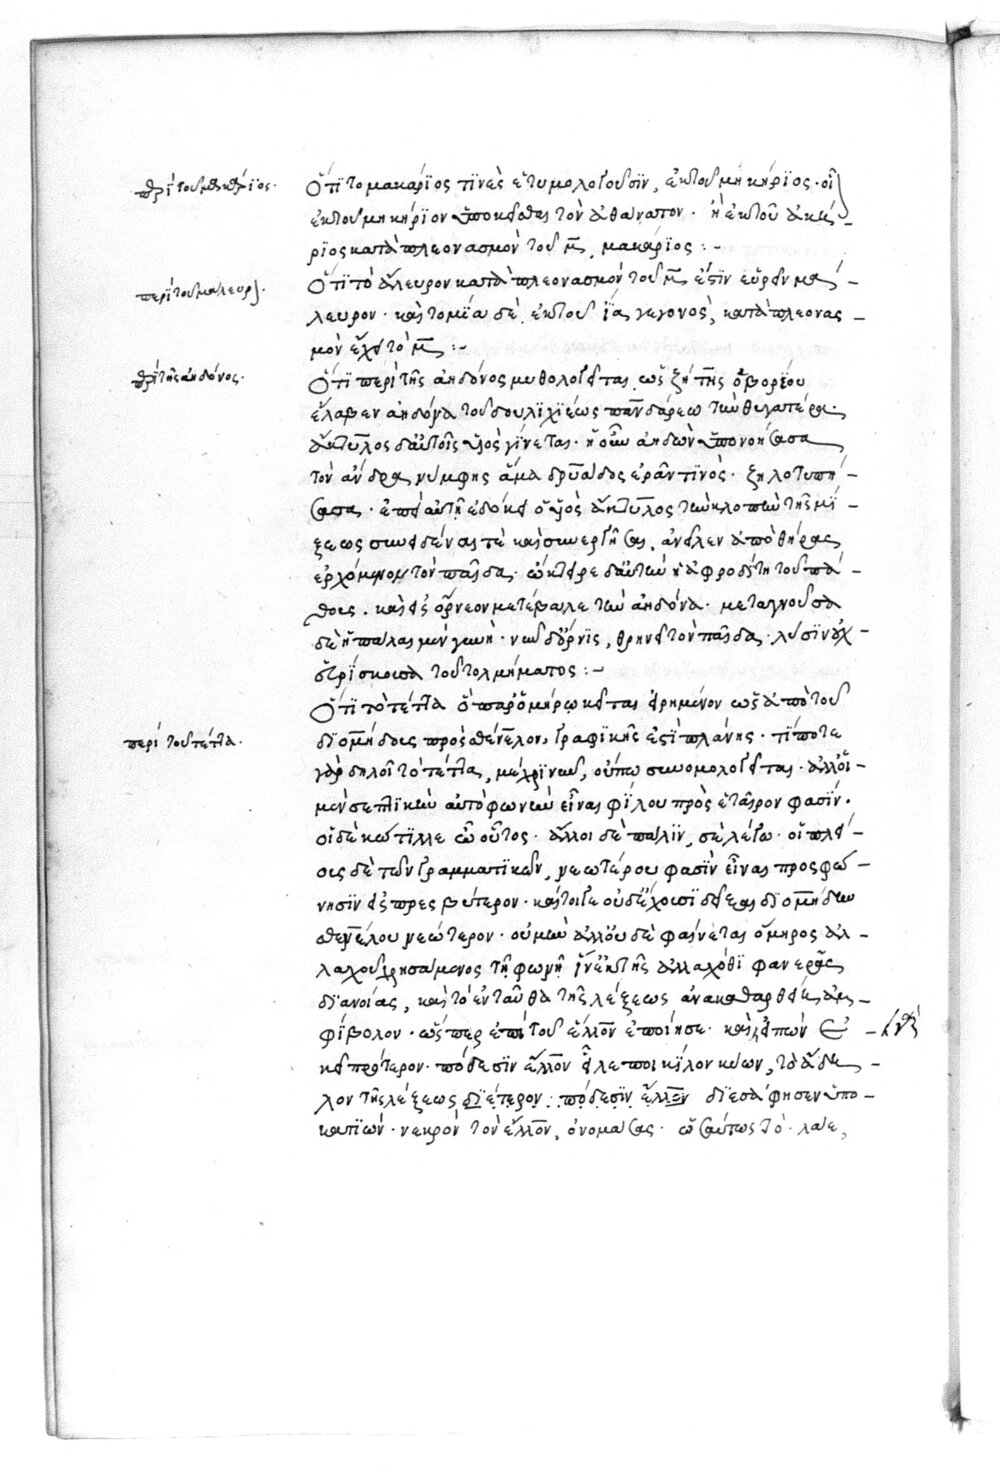 περὶ τοῦ μακάριος.
Ὅτι τὸ μακάριος τινὲς ἐτυμολογοῦσιν, ἐκ τοῦ μὴ κήριος· οἱ
ἐκ τοῦ μὴ κηρὶ ὑποκεῖσθαι τὸν ἀθάνατον· ἢ ἐκ τοῦ ἀκά
ριος κατὰ πλεονασμὸν τοῦ μ̅, μακάριος :~
περὶ τοῦ μάλευρον.
Ὅτι τὸ ἄλευρον κατὰ πλεονασμὸν τοῦ μ̅ ἐστὶν εὑρεῖν μά
λευρον· καὶ τὸ μία δὲ ἐκ τοῦ ἴα γεγονὸς, κατὰ πλεονας
μὸν ἔχει τὸ μ̅ :~
περὶ τῆς ἀηδόνος.
Ὅτι περὶ τῆς ἀηδόνος μυθολογεῖται, ὡς ζήτης ὁ βορέου
ἔλαβεν ἀηδόνα τοῦ δουλιχιέως πανδάρεω τὴν θυγατέρα·
ἄητυλος δ' αὐτοῖς υἱὸς γίνεται· ἡ οὖν ἀηδὼν ὑπονοήσασα
τὸν ἄνδρα νύμφης ἅμα δρυάδος ἐρᾶν τινὸς· ζηλοτυπή
σασα· ἐπεὶ αὐτῇ ἐδόκει ὁ υἱὸς ἄητυλος τῶν κλοπῶν τῆς μί
ξεως συνειδέναι τὲ καὶ συνεργῆσαι, ἀνεῖλεν ἀπὸ θήρας
ἐρχόμενον τὸν παῖδα· ᾤκτειρε δ' αὐτὴν ἡ ἀφροδίτη τοῦ πά
θους· καὶ εἰς ὄρνεον μετέβαλε τὴν ἀηδόνα· μεταγνοῦσα
δὲ ἡ πάλαι μὲν γυνὴ· νῦν δ' ὄρνις, θρηνεῖ τὸν παῖδα· λύσιν οὐχ
εὑρίσκουσα τοῦ τολμήματος :~
περὶ τοῦ τέττα.
Ὅτι τὸ τέττα ὃ παρ' ὁμήρῳ κεῖται εἰρημένον ὡς ἀπὸ τοῦ
διομήδους πρὸς σθένελον, γραφικῆς ἐστὶ πλάνης· τί ποτε
γὰρ δηλοῖ τὸ τέττα, μέχρι νῦν, οὔπω συνομολογεῖται· ἀλλ' οἱ
μὲν σεπτικὴν αὐτὸ φωνὴν εἶναι φίλου πρὸς ἑταῖρον φασίν·
οἱ δὲ κώτιλλε ὦ οὗτος· ἄλλοι δὲ πάλιν, σὲ λέγω· οἱ πλεί
ους δὲ τῶν γραμματικῶν, νεωτέρου φασὶν εἶναι προσφώ
νησιν εἰς πρεσβύτερον· καίτοιγε οὐδ' ἔχουσι δεῖξαι διομήδην
σθενέλου νεώτερον· οὐ μὴν ἀλλ' οὐδὲ φαίνεται ὅμηρος ἀλ
λαχοῦ χρησάμενος τῇ φωνῇ ἵν' ἐκ τῆς ἀλλαχόθι φανερᾶς
διανοίας, καὶ τὸ ἐνταῦθα τῆς λέξεως ἀνακαθαρθείη ἀμ
φίβολον· ὥσπερ ἐπὶ τοῦ ἕλλον ἐποίησε· καὶ εἰπὼν ἐ
κεῖ πρότερον· πόδεσιν ἕλλον εἷλε ποικίλον κύων, τὸ ἄδη
λον τῆς λέξεως διέτερον· πόδεσιν ἕλλον διεσάφησεν ὑπο
κατιών· νεκρὸν τὸν ἕλλον, ὀνομάσας· ὡσαύτως τὸ· λάε,